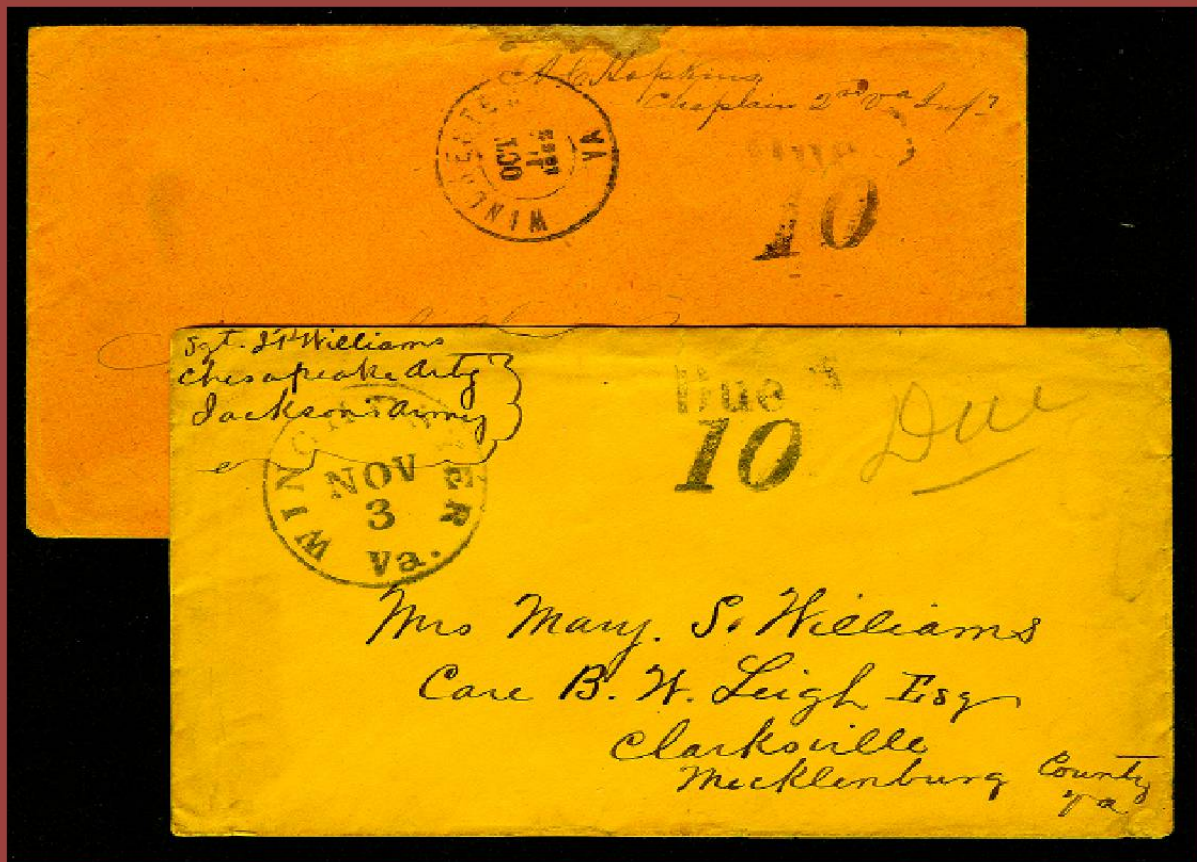 A C Hopkins
Chaplain 2nd Va Inf
WINCHESTER VA
OCT
10
Sgt. Williams
Chesapeake Arty
Jackson's Army
WINCHESTER
NOV
3
Va.
Due
10
Due
Mrs Mary. S. Williams
Care B. W. Leigh Esq
Clarksville
Mecklenburg County
Va